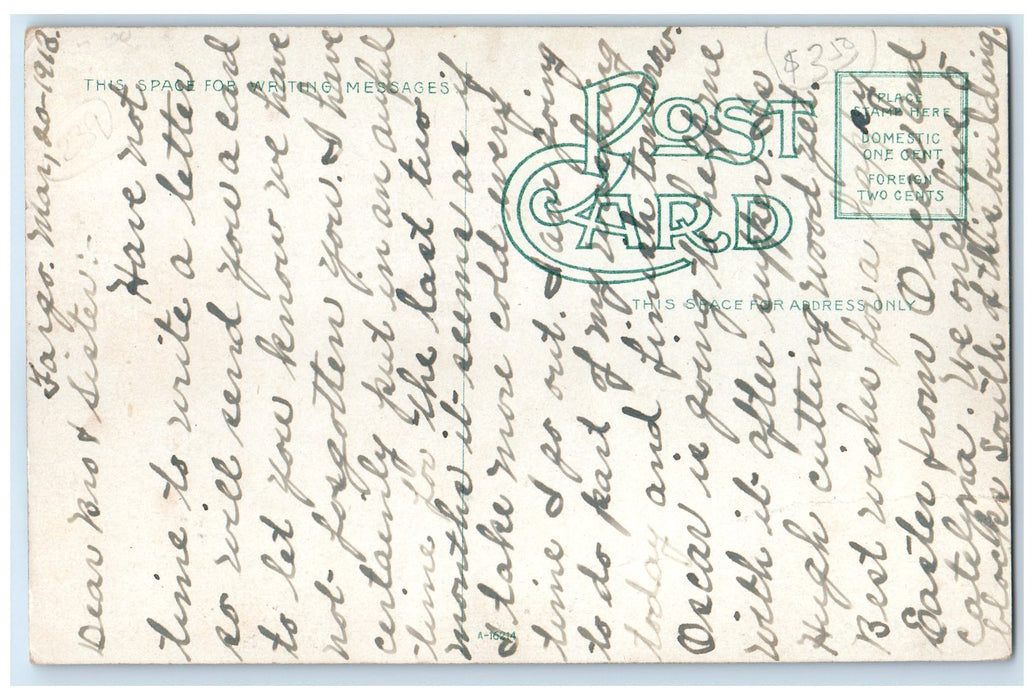 THIS SPACE FOR WRITING MESSAGES
POST
CARD
THIS SPACE FOR ADDRESS ONLY
PLACE
STAMP HERE
DOMESTIC
ONE CENT
FOREIGN
TWO CENTS
A-16214
$350
Fargo. Mar, 20-1913.
Dear Bro & Sister:-
Have not
time to write a letter
so will send you a card
to let you know we have
not forgotten you. I have
certainly put in an awful
time for the last two
months it seems as if
I take more cold every
time I go out. I am going
to do part of my ironing
today and finish tomorrow.
Oscar is going to help me
with it after supper. He is
Hugh cutting wood yet.
Best wishes for a happy
Easter from Oscar and
Catelna. We only live 5
blocks South of this building.